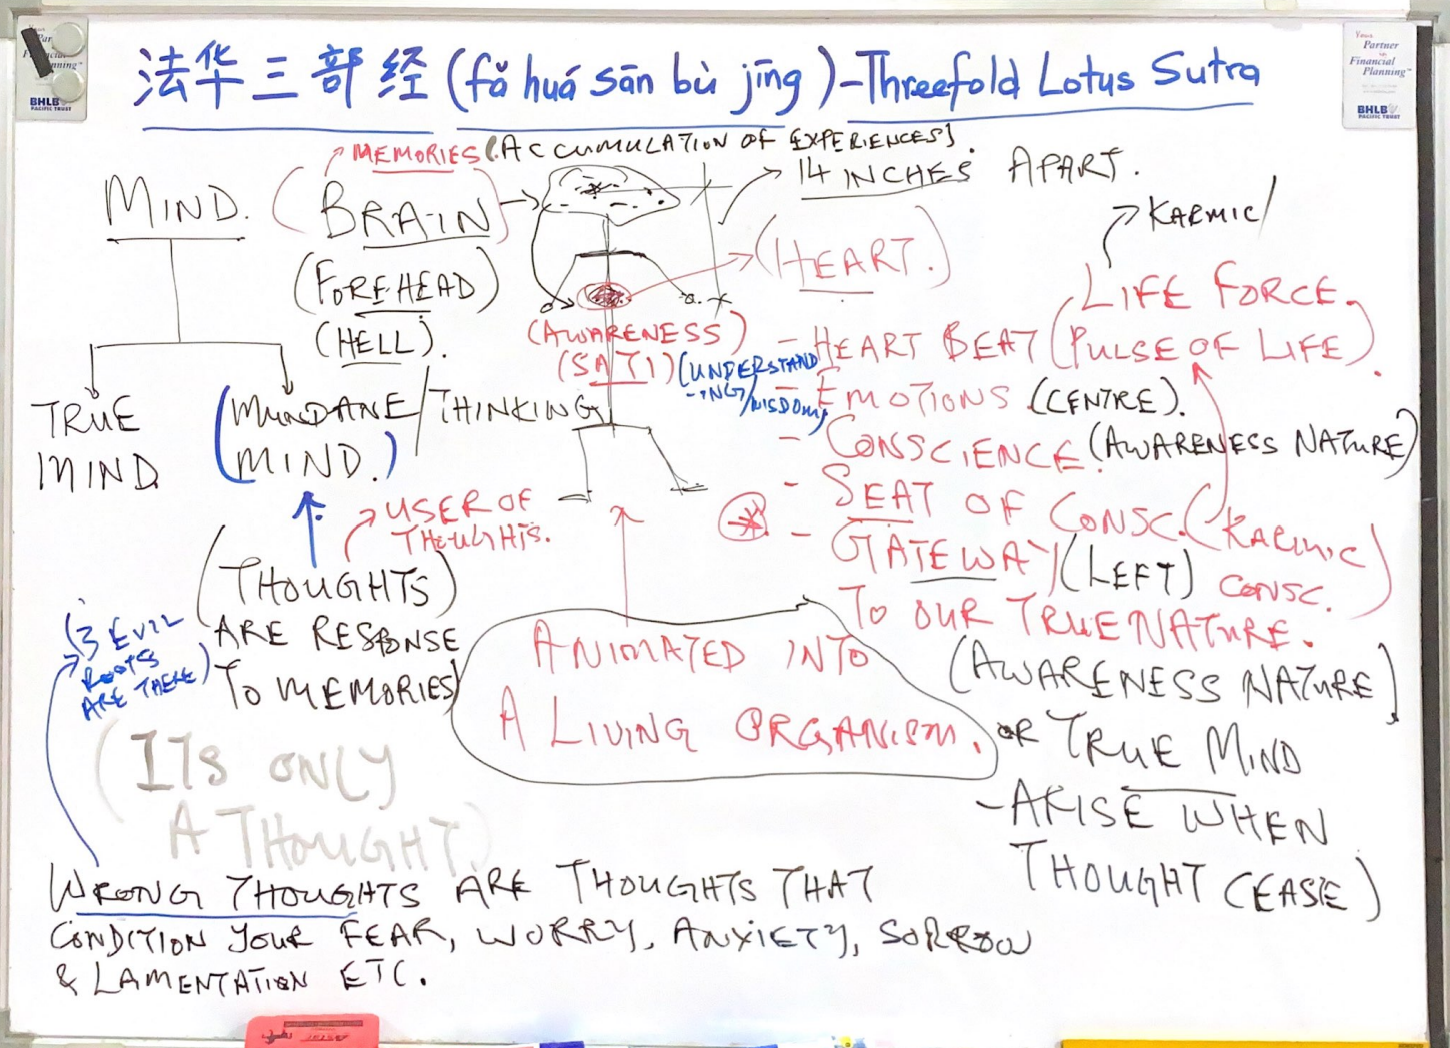 法华三部经 (fǎ huá sān bù jīng) - Threefold Lotus Sutra
Your Partner in Financial Planning™
BHLB
PACIFIC TRUST
MEMORIES (ACCUMULATION OF EXPERIENCES).
14 INCHES APART.
MIND.
(BRAIN)
(FOREHEAD)
(HELL).
(HEART.)
KARMIC/
LIFE FORCE.
(AWARENESS)
(SATI)
(UNDERSTAND
-ING/WISDOM)
- HEART BEAT (PULSE OF LIFE).
- EMOTIONS (CENTRE).
- CONSCIENCE. (AWARENESS NATURE)
- SEAT OF CONSC. (KARMIC
CONSC.)
- GATEWAY (LEFT)
TO OUR TRUE NATURE.
(AWARENESS NATURE
OR TRUE MIND
- ARISE WHEN
THOUGHT CEASE)
TRUE
MIND
(MUNDANE / THINKING
MIND.)
USER OF
THOUGHTS.
(THOUGHTS)
ARE RESPONSE
TO MEMORIES)
(3 EVIL
ROOTS
ARE THERE)
(ITS ONLY
A THOUGHT)
ANIMATED INTO
A LIVING ORGANISM.
WRONG THOUGHTS ARE THOUGHTS THAT
CONDITION YOUR FEAR, WORRY, ANXIETY, SORROW
& LAMENTATION ETC.
Your Partner in Financial Planning™
BHLB
PACIFIC TRUST